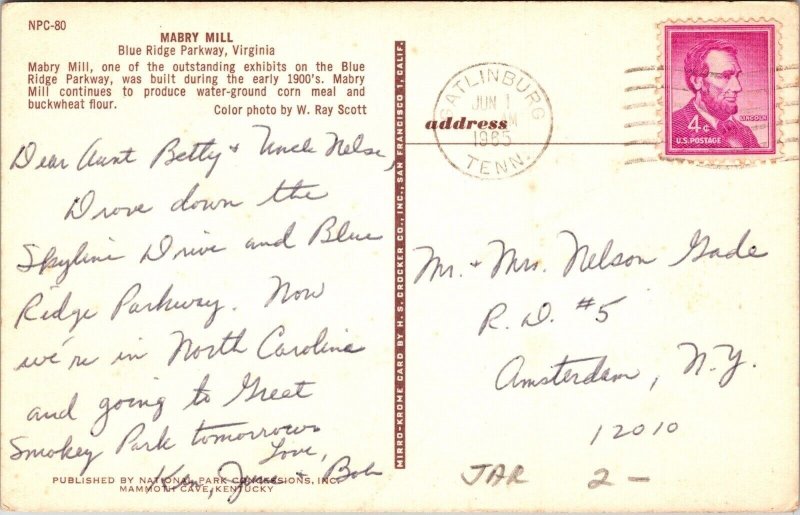 NPC-80
MABRY MILL
Blue Ridge Parkway, Virginia
Mabry Mill, one of the outstanding exhibits on the Blue
Ridge Parkway, was built during the early 1900's. Mabry
Mill continues to produce water-ground corn meal and
buckwheat flour.
Color photo by W. Ray Scott
Dear Aunt Betty & Uncle Nelse,
Drove down the
Skyline Drive and Blue
Ridge Parkway. Now
we're in North Carolina
and going to Great
Smokey Park tomorrow
Love,
Ken, & Bob
PUBLISHED BY NATIONAL PARK CONCESSIONS, INC.
MAMMOTH CAVE, KENTUCKY
MIRRO-KROME CARD BY H. S. CROCKER CO., INC., SAN FRANCISCO 1, CALIF.
address
GATLINBURG
JUN 1
M
1965
TENN.
LINCOLN
4¢
U.S. POSTAGE
Mr. & Mrs. Nelson Gade
R.D. #5
Amsterdam, N.Y.
12010
JAR 2-